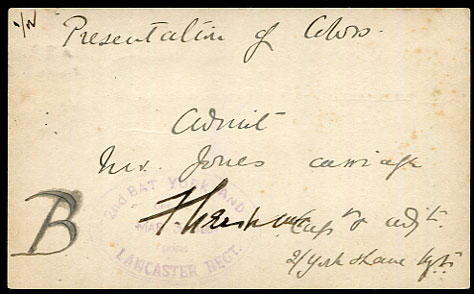 1/2
Presentation of Colors.
Admit
Mr. Jones carriage
B
2nd BAT YORK AND
LANCASTER REGT.
Capt & adjt.
2/ York & Lanc Rgt.